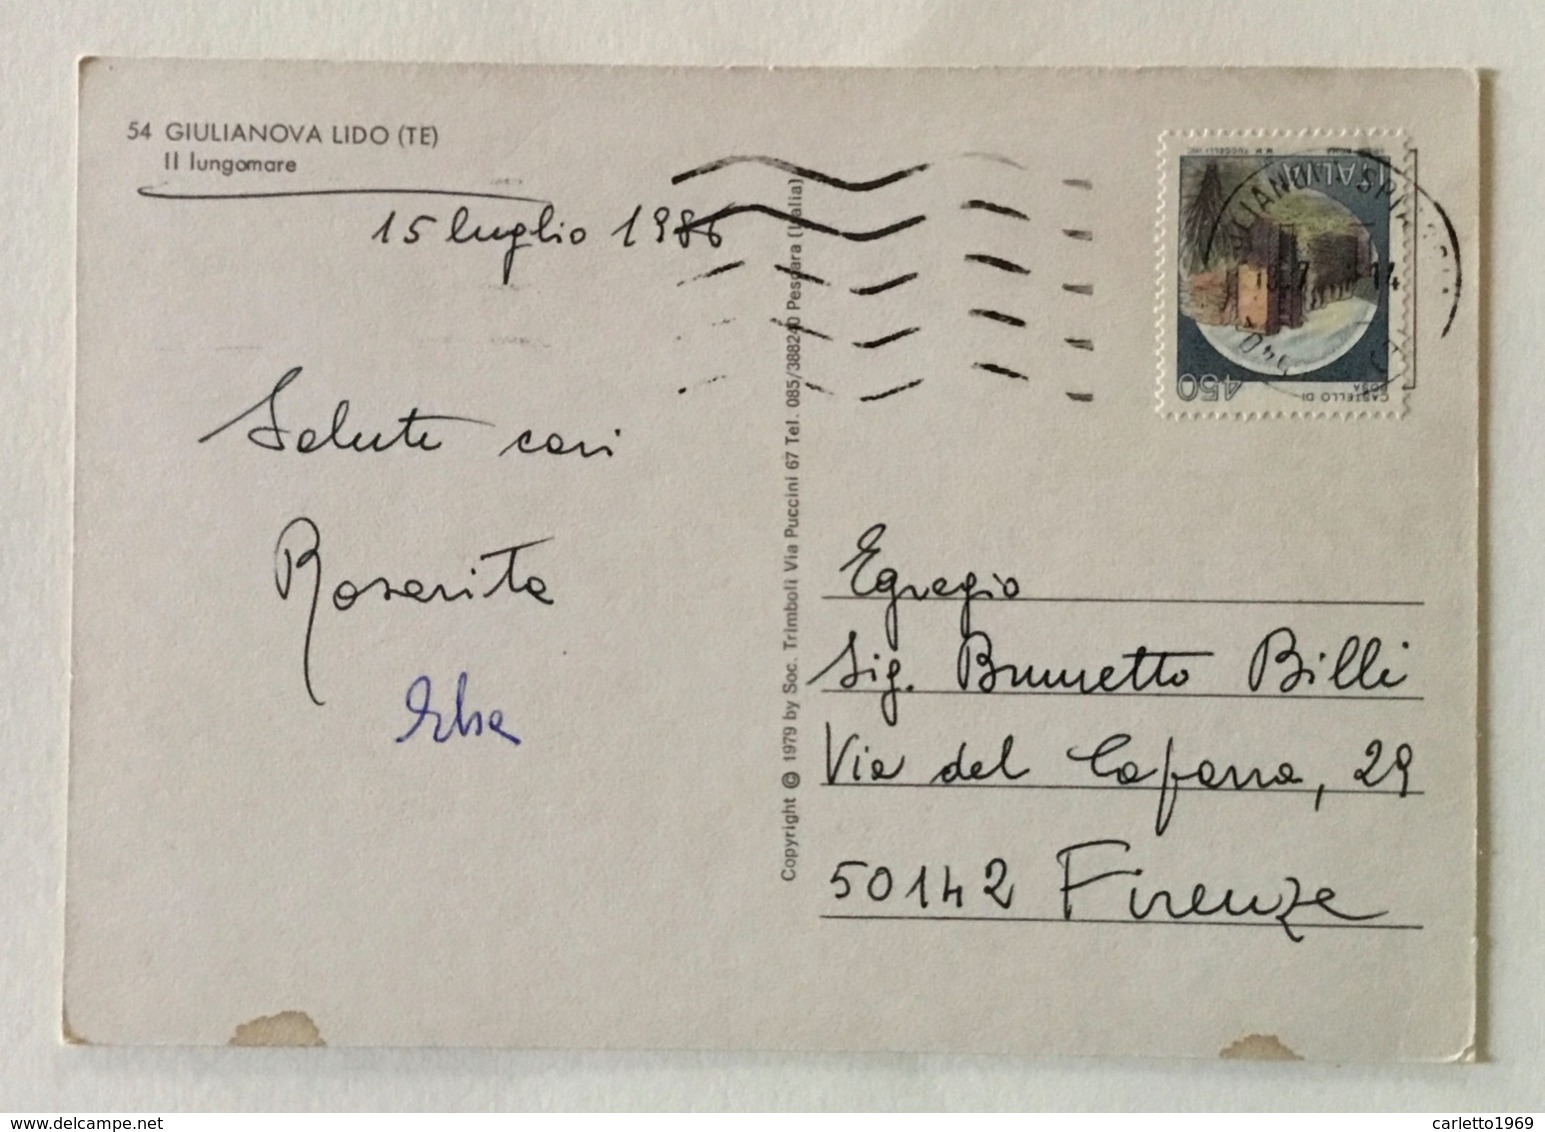 54 GIULIANOVA LIDO (TE)
Il lungomare
15 luglio 1986
Saluti cari
Rosarita
Elsa
Copyright © 1979 by Soc. Trimboli Via Puccini 67 Tel. 085/388240 Pescara (Italia)
450
CASTELLO DI
Egregio
Sig. Brunetto Billi
Via del Cafarra, 29
50142 Firenze
delcampe.net
carletto1969